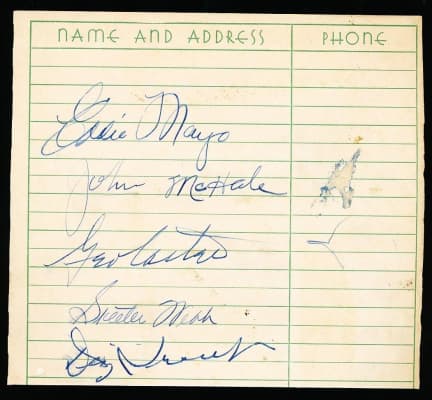 NAME AND ADDRESS PHONE
Eddie Mayo
John McHale
Geo Caster
Skeeter Webb
Dizzy Trout